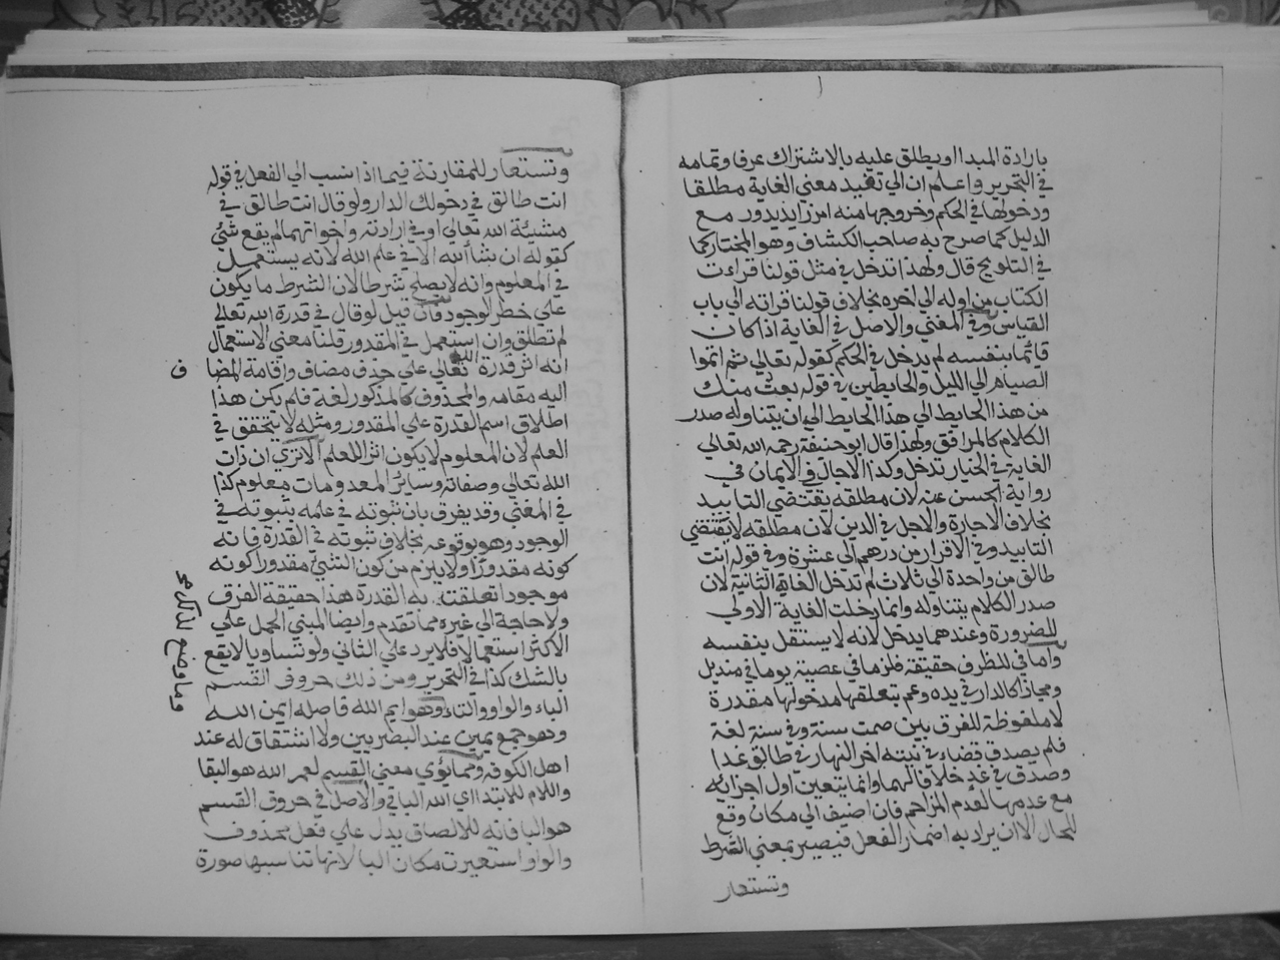 بارادة المبدا او يطلق عليه بالاشتراك عرفا وتمامه
في التحرير واعلم ان الي تفيد معني الغاية مطلقا
ودخولها في الحكم وخروجها منه امر زايد يدور مع
الدليل كما صرح به صاحب الكشاف وهو المختار كما
في التلويح قال ولهذا تدخل في مثل قولنا قرات
الكتاب من اوله الي اخره بخلاف قولنا قراته الي باب
القياس وفي المغني والاصل في الغاية اذا كان
قائما بنفسه لم يدخل في الحكم كقوله تعالي ثم اتموا
الصيام الي الليل والحايطين في قوله بعت منك
من هذا الحايط الي هذا الحايط الي ان يتناوله صدر
الكلام كالمرافق ولهذا قال ابو حنيفة رحمه الله تعالي
الغاية في الخيار تدخل وكذا الاجال في الايمان في
رواية الحسن عنه لان مطلقه يقتضي التابيد
بخلاف الاجارة والاجل في الدين لان مطلقه لا يقتضي
التابيد وفي الاقرار من درهم الي عشرة وفي قوله انت
طالق من واحدة الي ثلاث لم تدخل الغاية الثانية لان
صدر الكلام يتناوله وانما دخلت الغاية الاولي
للضرورة وعندهما يدخل لانه لا يستقل بنفسه
واما في للظرف حقيقة فلزما في غصبته يوما في منديل
ومجازا كالدار في يده وعم بتعلقها مدخولها مقدرة
لا ملفوظة للفرق بين صمت سنة وفي سنة لغة
فلم يصدق قضاء في نيته اخر النهار في طالق غدا
وصدق في غد خلافا لهما وانما يتعين اول اجزائه
مع عدمها لعدم المزاحم فان اضيف الي مكان وقع
للحال الا ان يراد به اضمار الفعل فيصير بمعني الشرط
وتستعار
وتستعار للمقارنة فيما اذا نسب الي الفعل في قوله
انت طالق في دخولك الدار ولو قال انت طالق في
مشيئة الله تعالي او في ارادته واخواتهما لم يقع شئ
كقوله ان شا الله الا في علم الله لانه يستعمل
في المعلوم وانه لا يصلح شرطا لان الشرط ما يكون
علي خطر الوجود فان قيل لو قال في قدرة الله تعالي
لم تطلق وان استعمل في المقدور قلنا معني الاستعمال
انه اثر قدرة الله تعالي علي حذف مضاف واقامة المضا
ف
اليه مقامه والمحذوف كالمذكور لغة فلم يكن هذا
اطلاق اسم القدرة علي المقدور ومثله لا يتحقق في
العلم لان المعلوم لا يكون اثرا للعلم الا تري ان ذات
الله تعالي وصفاته وسائر المعدومات معلوم كذا
في المغني وقد يفرق بان ثبوته في علمه بثبوته في
الوجود وهو بوقوعه بخلاف ثبوته في القدرة فانه
كونه مقدورا ولا يلزم من كون الشئ مقدورا كونه
موجودا تعلقت به القدرة هذا حقيقة الفرق
ولا حاجة الي غيره مما تقدم وايضا المبني الحمل علي
الاكثر استعمالا فلا يرد علي الثاني ولو تساويا لا يقع
بالشك كذا في التحرير ومن ذلك حروف القسم
الباء والواو والتاء وهو ايم الله فاصله ايمن الله
وهو جمع يمين عند البصريين ولا اشتقاق له عند
اهل الكوفه ومما يؤدي معني القسم لعمر الله هو البقا
واللام للابتدا اي الله الباقي والاصل في حروف القسم
هو البا فانه للالصاق يدل علي فعل محذوف
والواو استعيرت مكان البا لانها تناسبها صورة
وما وضع للقسم